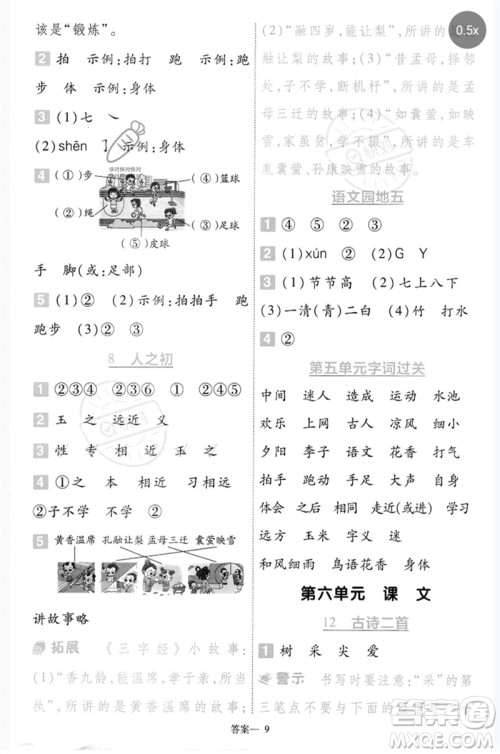 该是“锻炼”。
2 拍 示例:拍打 跑 示例:跑步
体 示例:身体
3 (1)七 乀
(2)shēn 丁 示例:身体
4 (①)步 (④)篮球
(②)绳 (③)足球
(⑤)皮球
手 脚(或:足部)
5 (1)② (2)示例:拍拍手 跑
跑步 (3)②
8 人之初
1 ②③④ ①②③⑥ ①②④⑤
2 玉 之 远近 义
3 性 专 相近 玉 之
4 ①之 本 相近 习相远
②子不学 子不学 ③②
5 黄香温席 孔融让梨 孟母三迁 囊萤映雪
讲故事略
拓展 《三字经》小故事:
(1)“香九龄,能温席,孝于亲,所
当执”所讲的是黄香温席的故事;
(2)“融四岁,能让梨”所讲的是孔
融让梨的故事;(3)“昔孟母,择邻
处,子不学,断机杼”所讲的是孟
母三迁的故事;(4)“如囊萤,如映
雪,家虽贫,学不辍”,所讲的是车
胤囊萤、孙康映雪的故事。
语文园地五
1 ④ ⑤ ② ① ③
2 (1)xún (2)G Y
3 (1)节节高 (2)七上八下
(3)一清(青)二白 (4)竹 打水
4 ②
第五单元字词过关
中间 迷人 造成 运动 水池
欢乐 上网 古人 凉风 细小
夕阳 李子 语文 花香 打气
拍手 跑动 手足 大声 身上
体会 之后 相同 走近(或进) 学习
远方 玉米 字义 迷……
和风细雨 鸟语花香 ……
第六单元 课 文
12 古诗二首
1 树 采 尖 爱
警示 书写时要注意:“采”的第
三笔点不要……
答案—9
0.5x